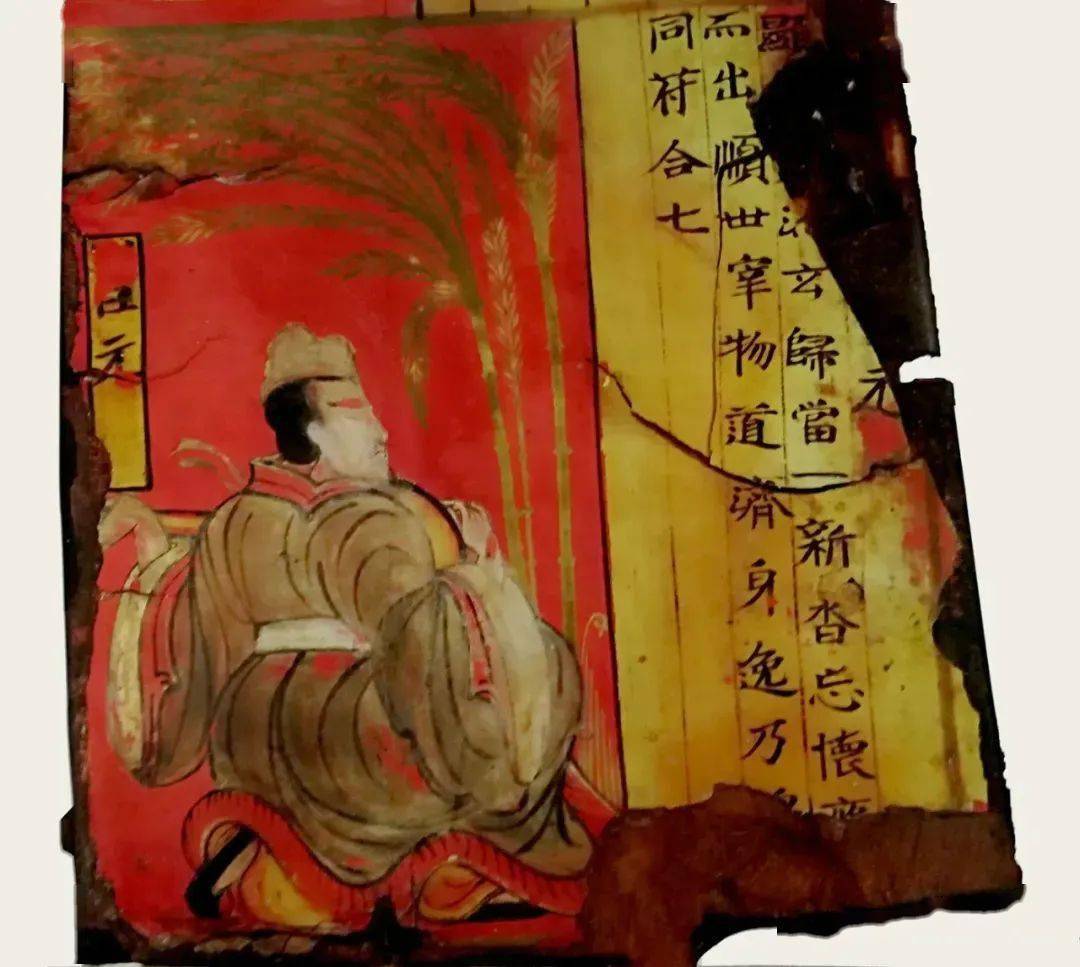 元
玄歸當一新沓忘懷
而出順世宰物道濟身逸乃
同符合七
元